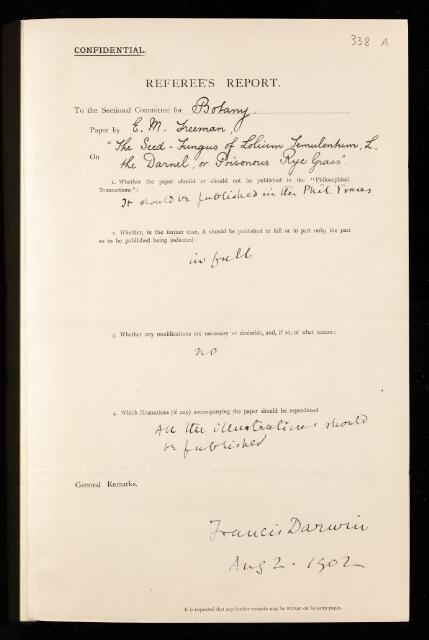 338 A
CONFIDENTIAL.
REFEREE'S REPORT.
To the Sectional Committee for Botany
Paper by E. M. Freeman,
On "The Seed-Fungus of Lolium Temulentum, L.
the Darnel, or Poisonous Rye Grass".
1. Whether the paper should or should not be published in the "Philosophical
Transactions":
It should be published in the Phil Trans
2. Whether, in the former case, it should be published in full or in part only, the part
so to be published being indicated:
in full
3. Whether any modifications are necessary or desirable, and, if so, of what nature:
no
4. Which illustrations (if any) accompanying the paper should be reproduced
All the illustrations should
be published
General Remarks.
Francis Darwin
Aug 2. 1902
It is requested that any further remarks may be written on foolscap paper.